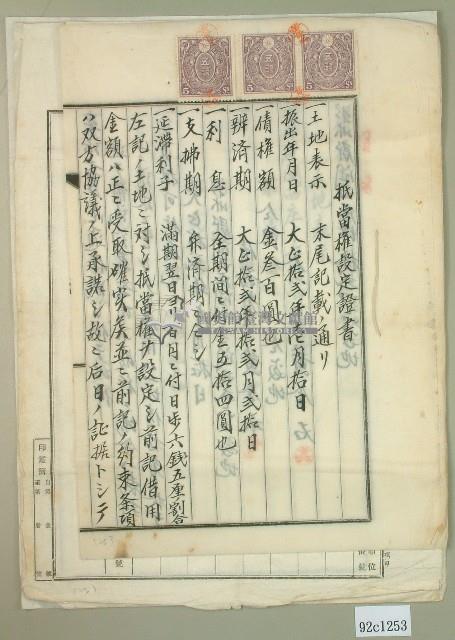 抵當權設定證書
一土地表示 末尾記載通リ
一振出年月日 大正拾貳年 月拾日
一債權額 金參百圓也
一辨済期 大正拾貳年拾貳月貳拾日
一利息 全期間ニ付金五拾四圓也
一支拂期 弁済期ト
一延滞利子 滿期翌日ヨリ百円ニ付日歩六銭五厘割合
左記ノ土地ニ対シ抵當權ヲ設定シ前記借用
金額ハ正ニ受取確実 前記ノ約束条項
ハ双方協議ノ上承諾シ故ニ后日ノ証拠トシテ
印鑑簿
92c1253